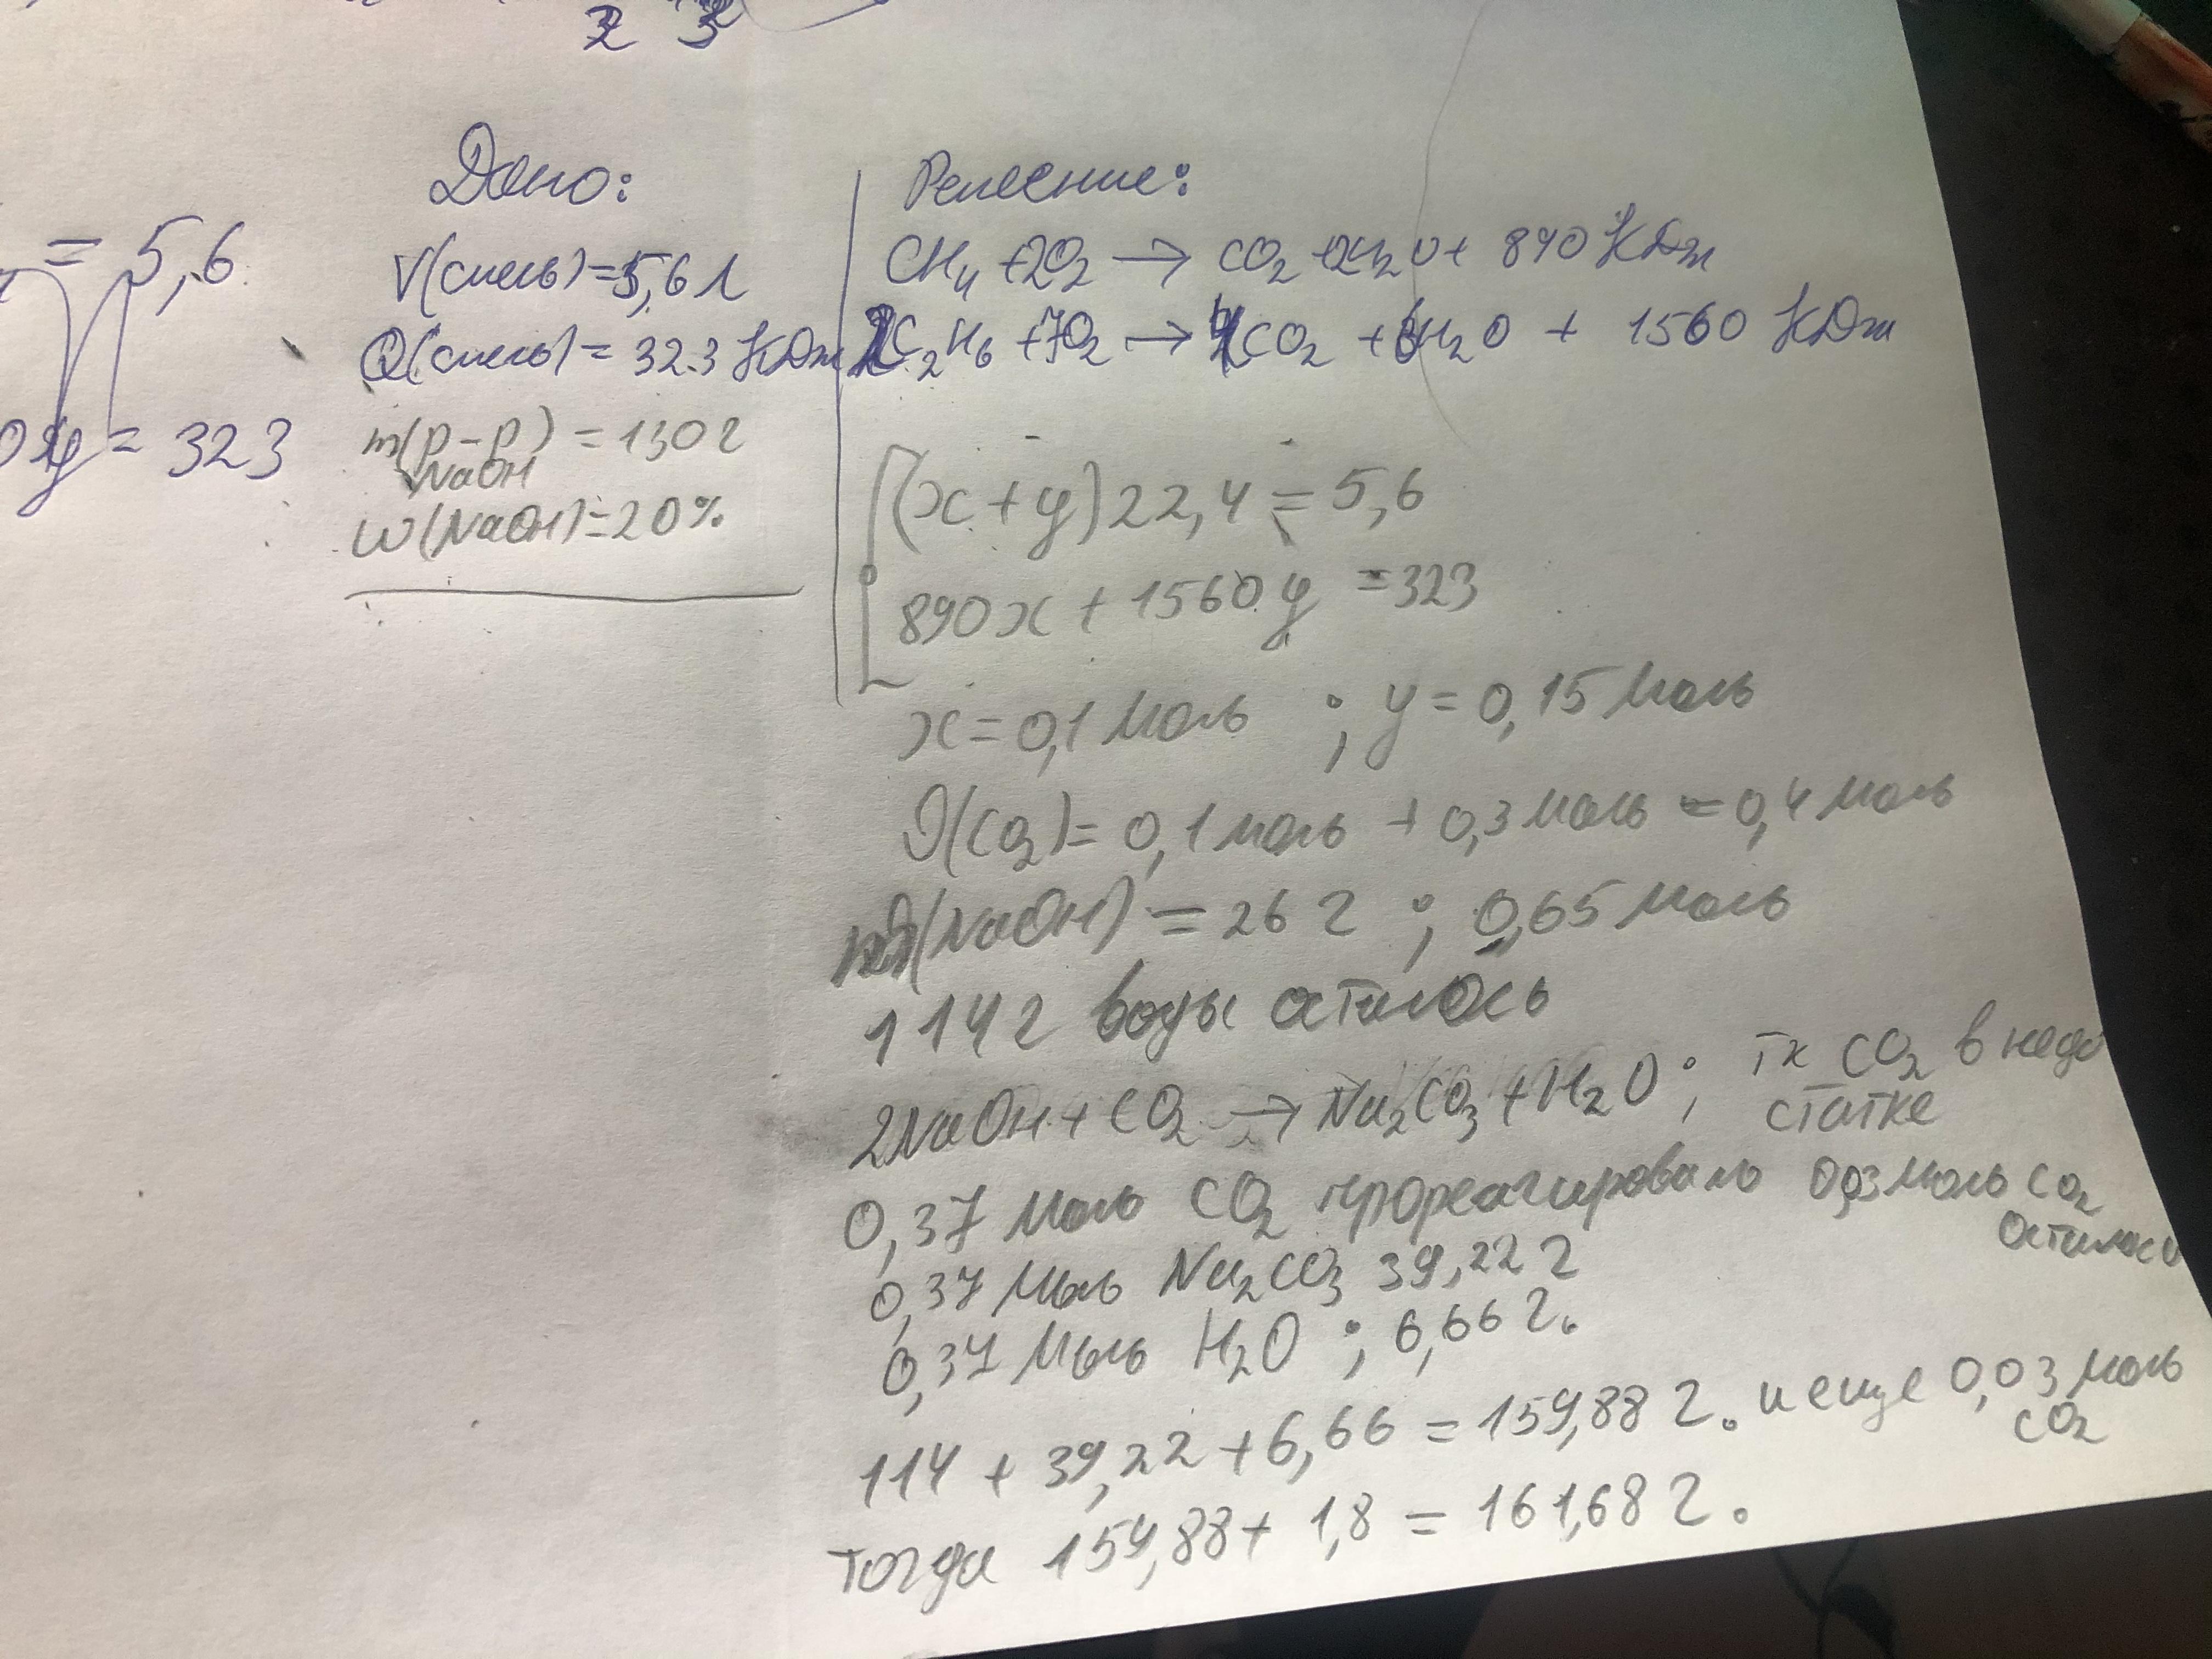 2 3
= 5,6
y = 323
Дано:
V(смесь)=5,6 л
Q(смесь) = 323 КДж
m(р-р) = 130 г
NaOH
W(NaOH)=20%
Решение:
CH4 + 2O2 → CO2 + 2H2O + 890 КДж
2C2H6 + 7O2 → 4CO2 + 6H2O + 1560 КДж
(x + y) 22,4 = 5,6
890x + 1560y = 323
x = 0,1 моль ; y = 0,15 моль
ϑ(CO2) = 0,1 моль + 0,3 моль = 0,4 моль
ϑ(NaOH) = 26 г ; 0,65 моль
114 г воды осталось
2NaOH + CO2 → Na2CO3 + H2O ; тк CO2 в недо
статке
0,37 моль CO2 прореагировало 0,03 моль CO2
осталось
0,37 моль Na2CO3 39,22 г
0,37 моль H2O ; 6,66 г.
114 + 39,22 + 6,66 = 159,88 г. и еще 0,03 моль
CO2
Тогда 159,88 + 1,8 = 161,68 г.